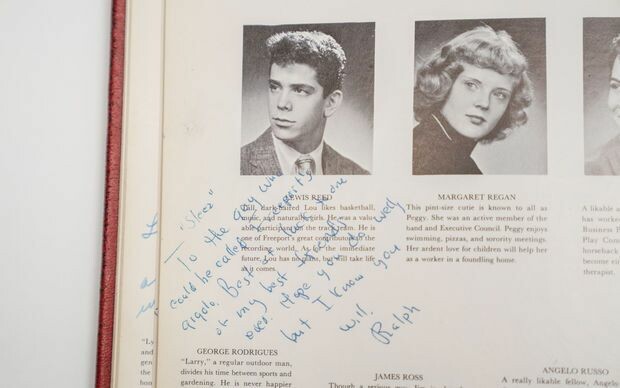 LEWIS REED
Tall, dark-haired Lou likes basketball,
music, and naturally, girls. He was a valu-
able participant on the track team. He is
one of Freeport's great contributors to the
recording world. As for the immediate
future, Lou has no plans, but will take life
as it comes.
"Sleez"
To the guy who
could be called Freeport's
gigolo. Best of luck to one
of my best friends
ever. Hope you do well
but I know you
will.
Ralph
MARGARET REGAN
This pint-size cutie is known to all as
Peggy. She was an active member of the
band and Executive Council. Peggy enjoys
swimming, pizzas, and sorority meetings.
Her ardent love for children will help her
as a worker in a foundling home.
A likable a
has worke
Business P
Play Com
horseback
become ei
therapist.
GEORGE RODRIGUES
"Larry," a regular outdoor man,
divides his time between sports and
gardening. He is never happier
JAMES ROSS
ANGELO RUSSO
A really likable fellow, Angelo
"Ly
and
gen
the